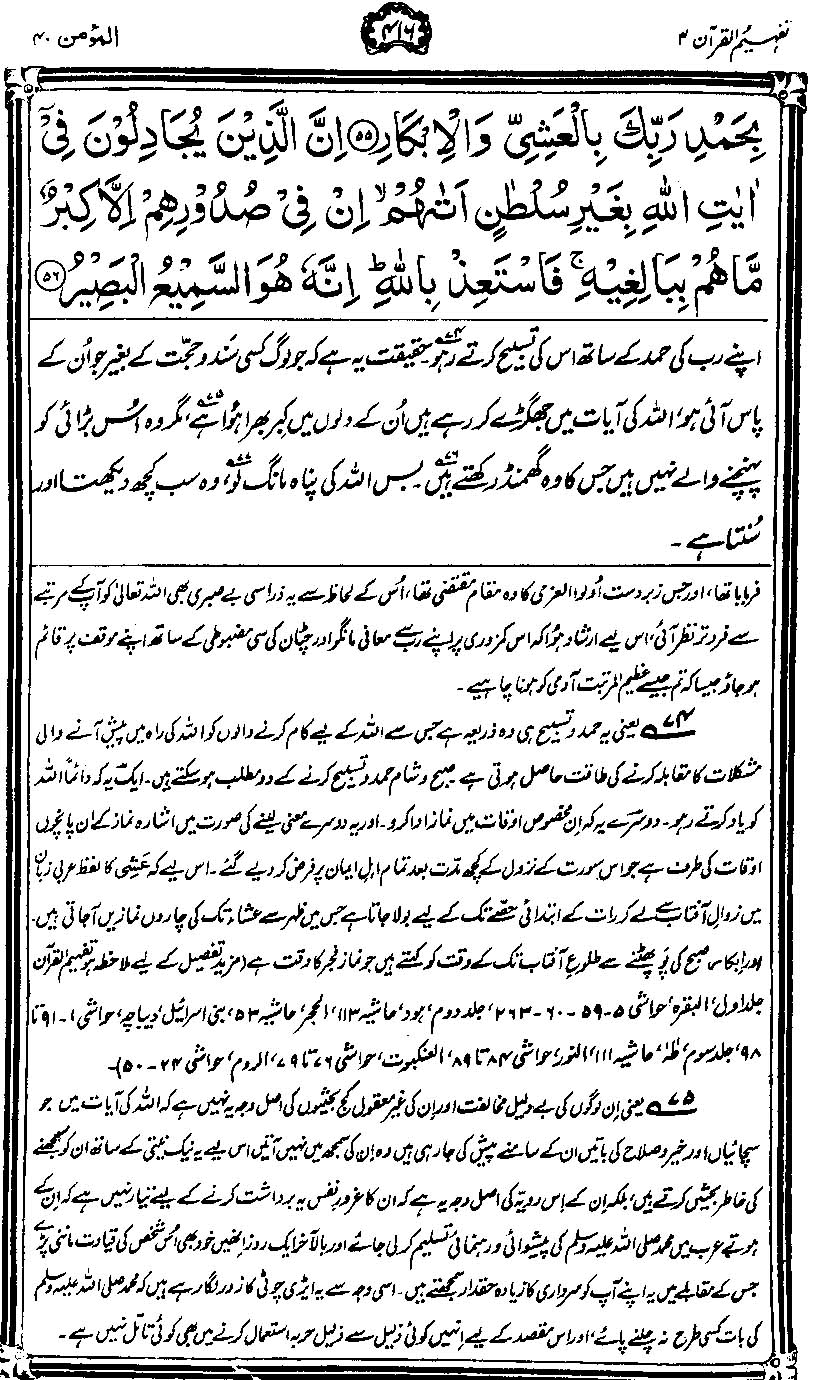 تفہیم القرآن ۴
۴۱۶
المؤمن ۴۰
بِحَمْدِ رَبِّكَ بِالْعَشِيِّ وَالْاِبْكَارِ ﴿۵۵﴾ اِنَّ الَّذِيْنَ يُجَادِلُوْنَ فِيْٓ
اٰيٰتِ اللّٰهِ بِغَيْرِ سُلْطٰنٍ اَتٰىهُمْ ۙ اِنْ فِيْ صُدُوْرِهِمْ اِلَّا كِبْرٌ
مَّا هُمْ بِبَالِغِيْهِ ۚ فَاسْتَعِذْ بِاللّٰهِ ؕ اِنَّهٗ هُوَ السَّمِيْعُ الْبَصِيْرُ ﴿۵۶﴾
اپنے رب کی حمد کے ساتھ اس کی تسبیح کرتے رہو۔۷۴ حقیقت یہ ہے کہ جو لوگ کسی سَند و حجّت کے بغیر جو اُن کے
پاس آئی ہو، اللہ کی آیات میں جھگڑے کر رہے ہیں اُن کے دلوں میں کِبر بھرا ہُوا ہے۷۵، مگر وہ اُس بڑائی کو
پہنچنے والے نہیں ہیں جس کا وہ گھمنڈ رکھتے ہیں۷۶۔ بس اللہ کی پناہ مانگ لو۷۷، وہ سب کچھ دیکھتا اور
سُنتا ہے۔
فرمایا تھا، اور جس زبردست اُولوا العزمی کا وہ مقام مقتضی تھا، اُس کے لحاظ سے یہ ذرا سی بے صبری بھی اللہ تعالیٰ کو آپ کے مرتبے
سے فروتر نظر آئی، اس لیے ارشاد ہُوا کہ اس کمزوری پر اپنے رب سے معافی مانگو اور چٹان کی سی مضبوطی کے ساتھ اپنے موقف پر قائم
ہو جاؤ جیسا کہ تم جیسے عظیم المرتبت آدمی کو ہونا چاہیے۔
۷۴ یعنی یہ حمد و تسبیح ہی وہ ذریعہ ہے جس سے اللہ کے لیے کام کرنے والوں کو اللہ کی راہ میں پیش آنے والی
مشکلات کا مقابلہ کرنے کی طاقت حاصل ہوتی ہے۔ صبح و شام حمد و تسبیح کرنے کے دو مطلب ہو سکتے ہیں۔ ایک یہ کہ دائماً اللہ
کو یاد کرتے رہو۔ دوسرے یہ کہ اِن مخصوص اوقات میں نماز ادا کرو۔ اور یہ دوسرے معنی لینے کی صورت میں اشارہ نماز کے ان پانچوں
اوقات کی طرف ہے جو اس سورت کے نزول کے کچھ مدّت بعد تمام اہلِ ایمان پر فرض کر دیے گئے۔ اس لیے کہ عَشِی کا لفظ عربی زبان
میں زوالِ آفتاب سے لے کر رات کے ابتدائی حصّے تک کے لیے بولا جاتا ہے جس میں ظہر سے عشاء تک کی چاروں نمازیں آجاتی ہیں۔
اور اِبکار صبح کی پَو پھٹنے سے طلوعِ آفتاب تک کے وقت کو کہتے ہیں جو نمازِ فجر کا وقت ہے (مزید تفصیل کے لیے ملاحظہ ہو تفہیم القرآن
جلد اول، البقرہ، حواشی ۵-۵۹-۶۰-۲۶۳، جلد دوم، ہود، حاشیہ ۱۱۳، الحجر، حاشیہ ۵۳، بنی اسرائیل، دیباچہ، حواشی ۱-۹۱ تا
۹۸، جلد سوم، طٰہٰ، حاشیہ ۱۱۱، النور، حواشی ۸۴ تا ۸۹، العنکبوت، حواشی ۷۶ تا ۷۹، الروم، حواشی ۲۴-۵۰)۔
۷۵ یعنی اِن لوگوں کی بے دلیل مخالفت اور اِن کی غیر معقول کج بحثیوں کی اصل وجہ یہ نہیں ہے کہ اللہ کی آیات میں جو
سچائیاں اور خیر و صلاح کی باتیں ان کے سامنے پیش کی جا رہی ہیں وہ اِن کی سمجھ میں نہیں آتیں اس لیے یہ نیک نیتی کے ساتھ ان کو سمجھنے
کی خاطر بحثیں کرتے ہیں، بلکہ اِن کے اِس رویہ کی اصل وجہ یہ ہے کہ ان کا غرورِ نفس یہ برداشت کرنے کے لیے تیار نہیں ہے کہ اِن کے
ہوتے عرب میں محمد صلی اللہ علیہ وسلم کی پیشوائی و رہنمائی تسلیم کرلی جائے اور بالآخر ایک روز اِنہیں خود بھی اُس شخص کی قیادت ماننی پڑے
جس کے مقابلے میں یہ اپنے آپ کو سرداری کا زیادہ حقدار سمجھتے ہیں۔ اسی وجہ سے یہ ایڑی چوٹی کا زور لگا رہے ہیں کہ محمد صلی اللہ علیہ وسلم
کی بات کسی طرح نہ چلنے پائے، اور اس مقصد کے لیے اِنہیں کوئی ذلیل سے ذلیل حربہ استعمال کرنے میں بھی کوئی تامّل نہیں ہے۔